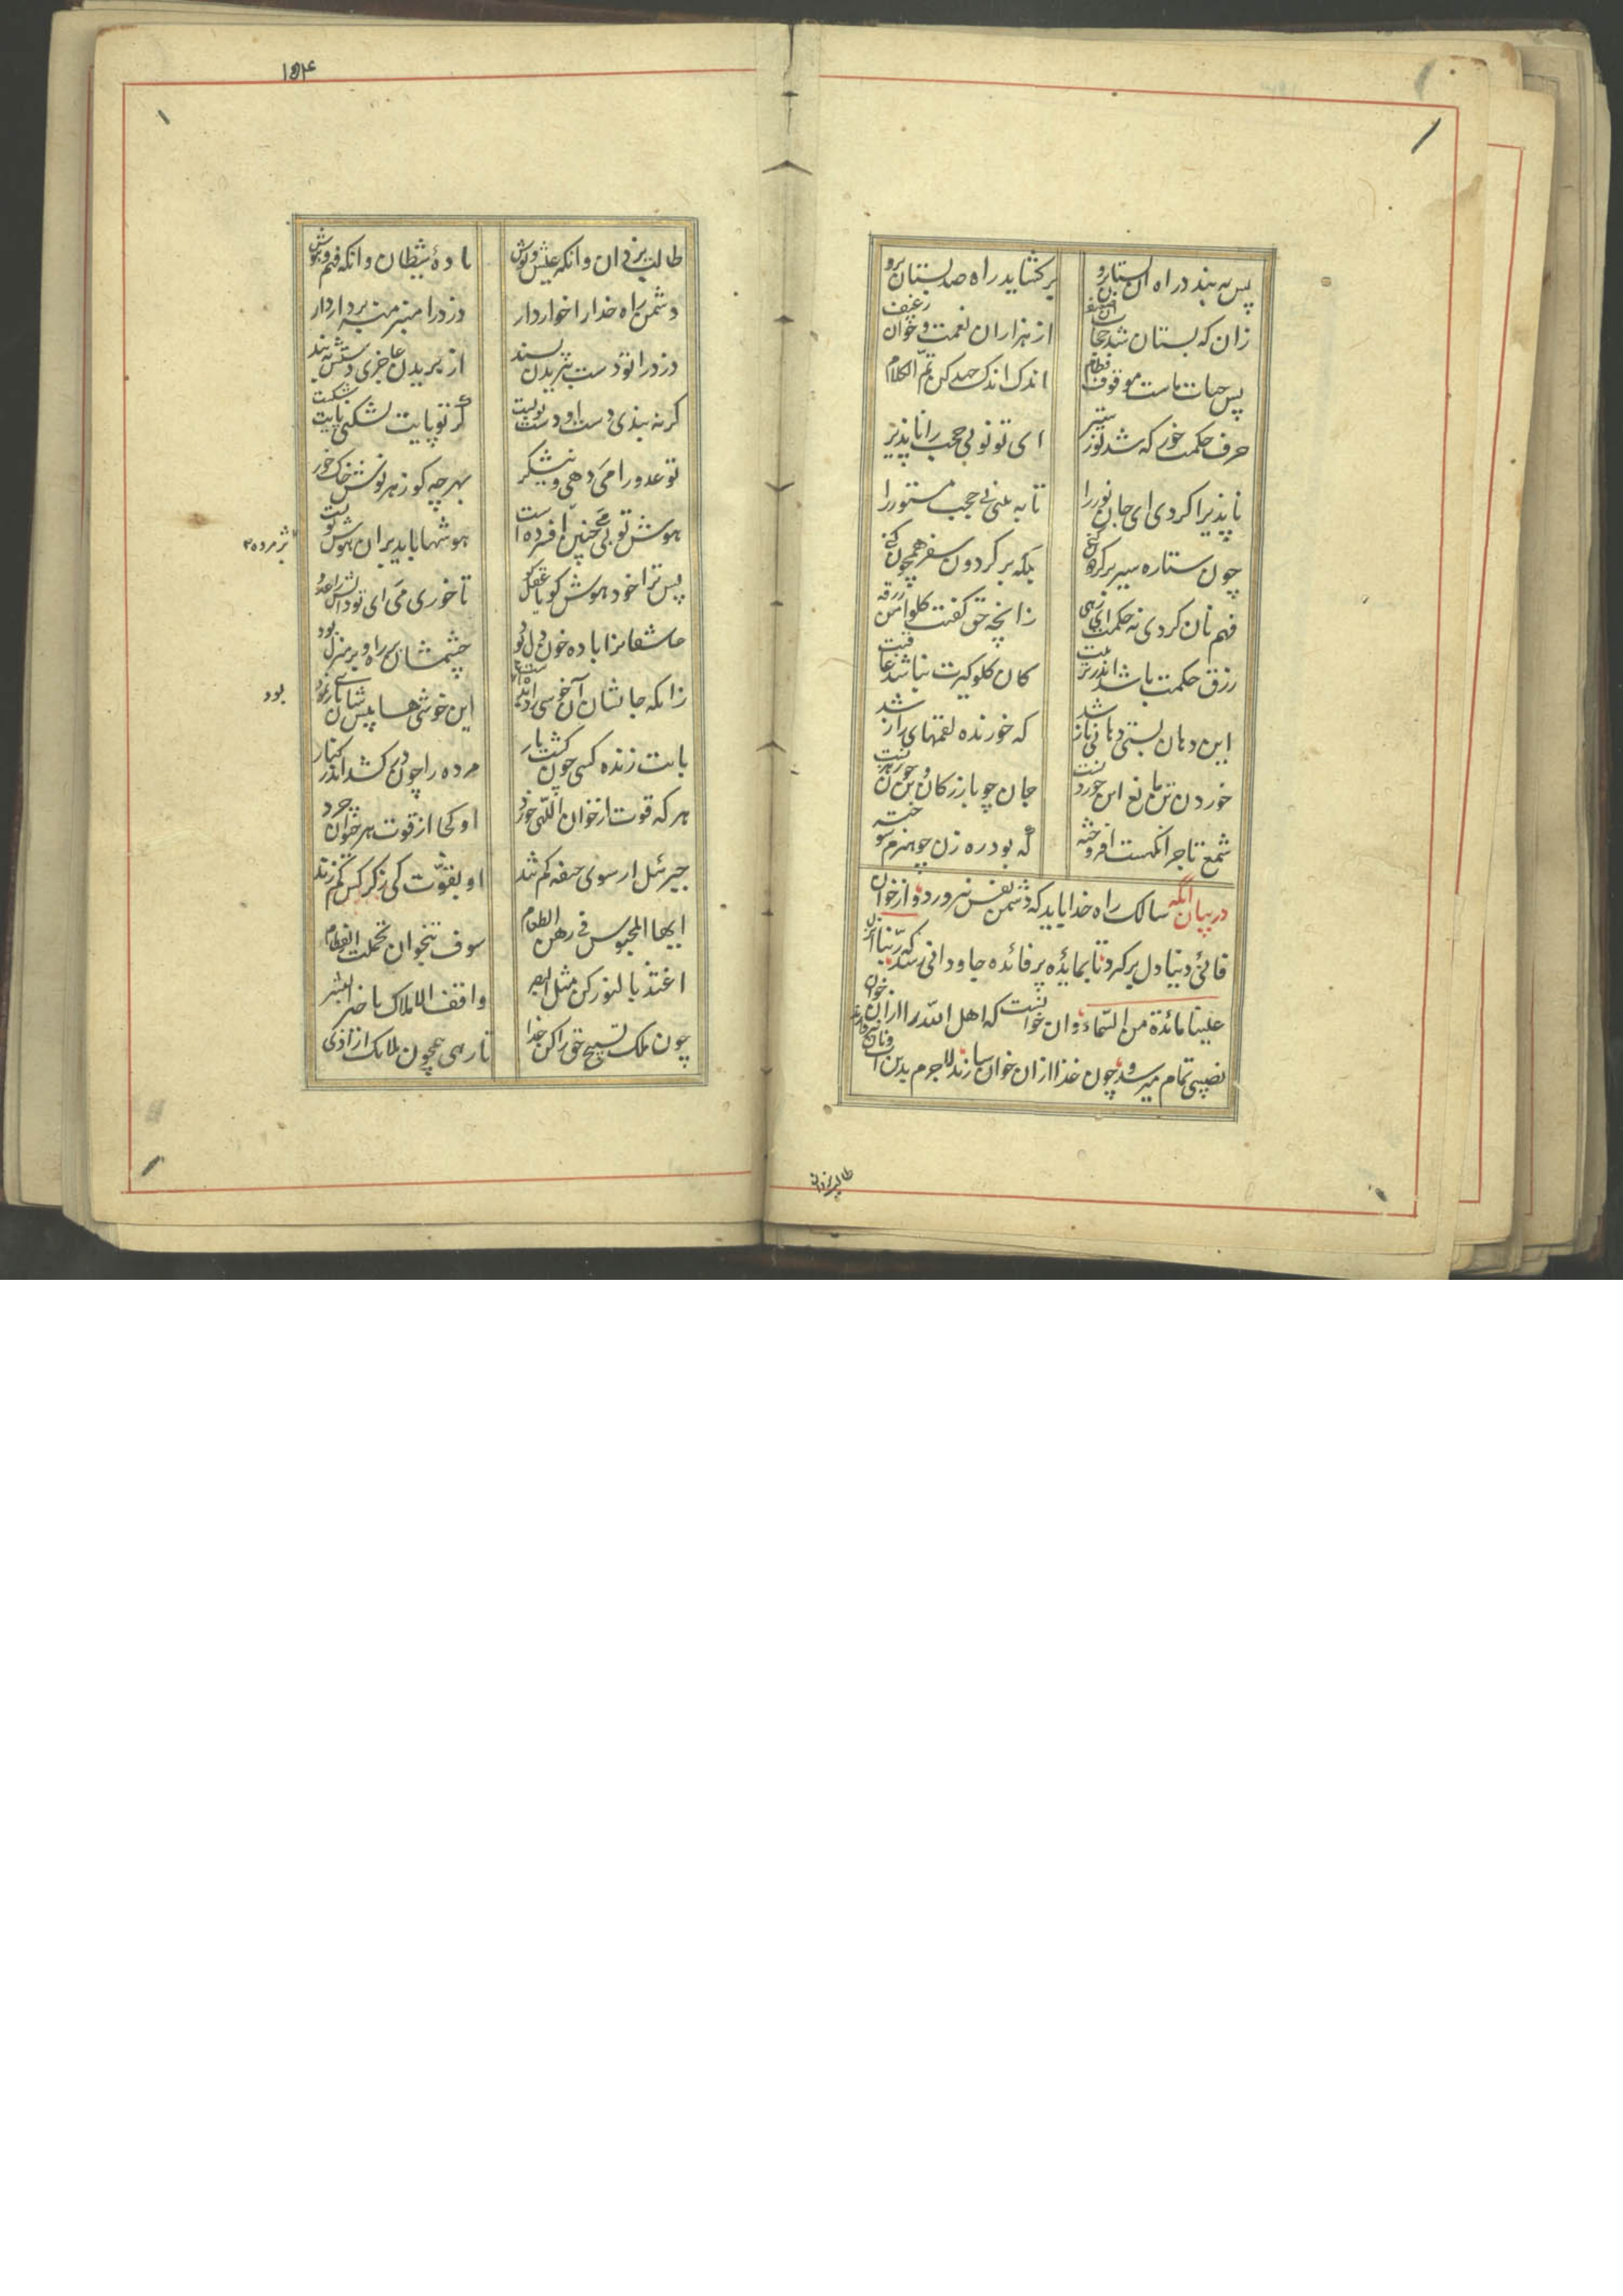 پس ببندد راه آن پستان برو
برکشاید راه صد بستان برو
زان که پستان شد حجاب آن ضعیف
از هزاران نعمت و خوان رغیف
پس حیات ماست موقوف فطام
اندک اندک جهد کن تم الکلام
حرف حکمت خور که شد نور ستیر
ای تو نور بی حجب را ناپذیر
تا پذیرا کردی ای جان نور را
تا به بینی بی حجب مستور را
چون ستاره سیر بر کردون کنی
بلکه بر کردون سفر همچون کنی
فهم نان کردی نه حکمت ای رهی
زانچه حق کفت کلوا من رزقه
رزق حکمت باشد اندر مرتبت
کان کلوکیرت نباشد عاقبت
این دهان بستی دهانی باز شد
که خورنده لقمهای راز شد
خوردن تن مانع این خوردنست
جان چو بازرکان و تن چون رهزنست
شمع تاجر آنکهست افروخته
که بود ره زن چو هیزم سوخته
در بیان آنکه سالک راه خدا باید که دشمن نفس نپرورد و از خوان
فانئ دنیا دل برکرد تا بمائده پر فائده جاودانی رسد که ربنا انزل
علینا مائدة من السماء و ان خوانیست که اهل الله را از ان خوان
نصیبی تمام میرسد و چون غذا از ان خوان سازند لاجرم بدین
طالب یزدان
۱۵۴
طالب یزدان و آنکه عیش و نوش
باده شیطان و آنکه فهم و هوش
دشمن راه خدا را خوار دار
دزد را منبر منه بر دار دار
دزد را تو دست ببریدن پسند
از بریدن عاجزی دستش ببند
کر نه بندی دست او دست تو بست
کر تو پایش نشکنی پایت شکست
تو عدو را می دهی و نیشکر
بهر چه کو زهر نوش و خاک خور
هوش تو بی می چنین افسرده است
هوشها باید بران هوش تو
پژمرده
پس ترا خود هوش کو یا عقل کو
تا خوری می ای تو دانش را عدو
عاشقانرا باده خون دل بود
چشمشان بر راه و بر منزل بود
زانکه جانشان آن خوشی را دیده
این خوشی ها پیش شان بازی نمود
بود
با بت زنده کسی چون کشت یار
مرده را چون در کشد اندر کنار
هر که قوت از خوان اللّهی خورد
او کجا از قوت هر خوان
جبرئیل ار سوی جیفه کم تند
او بقوّت کی ز کرکس کم زند
ایها المحبوس فی رهن الطعام
سوف تنجو ان تحملت الفطام
اغتذ بالنور کن مثل البصر
وافق الاملاک یا خیر البشر
چون ملک تسبیح حق را کن غذا
تا رهی همچون ملائک از اذی